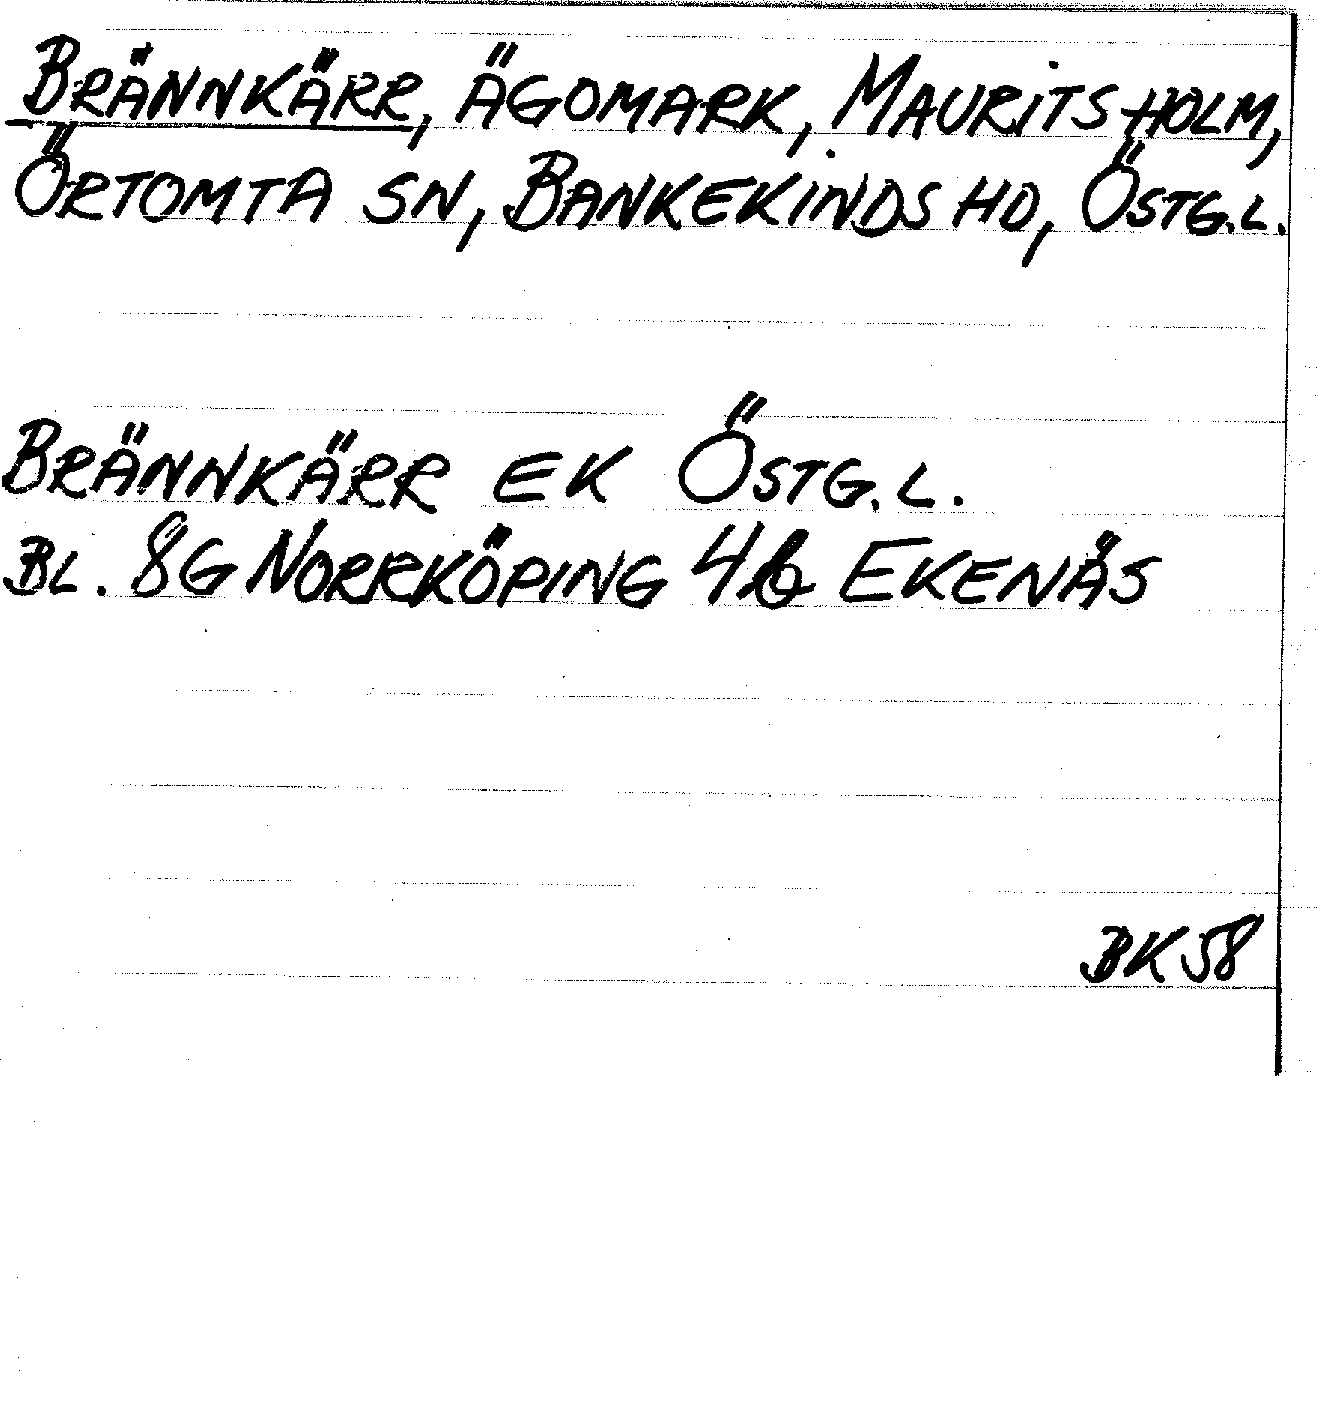 BRÄNNKÄRR, ÄGOMARK, MAURITSHOLM,
ÖRTOMTA SN, BANKEKINDS HD, ÖSTG.L.
BRÄNNKÄRR EK ÖSTG.L.
BL. 8G NORRKÖPING 4b EKENÄS
BK58